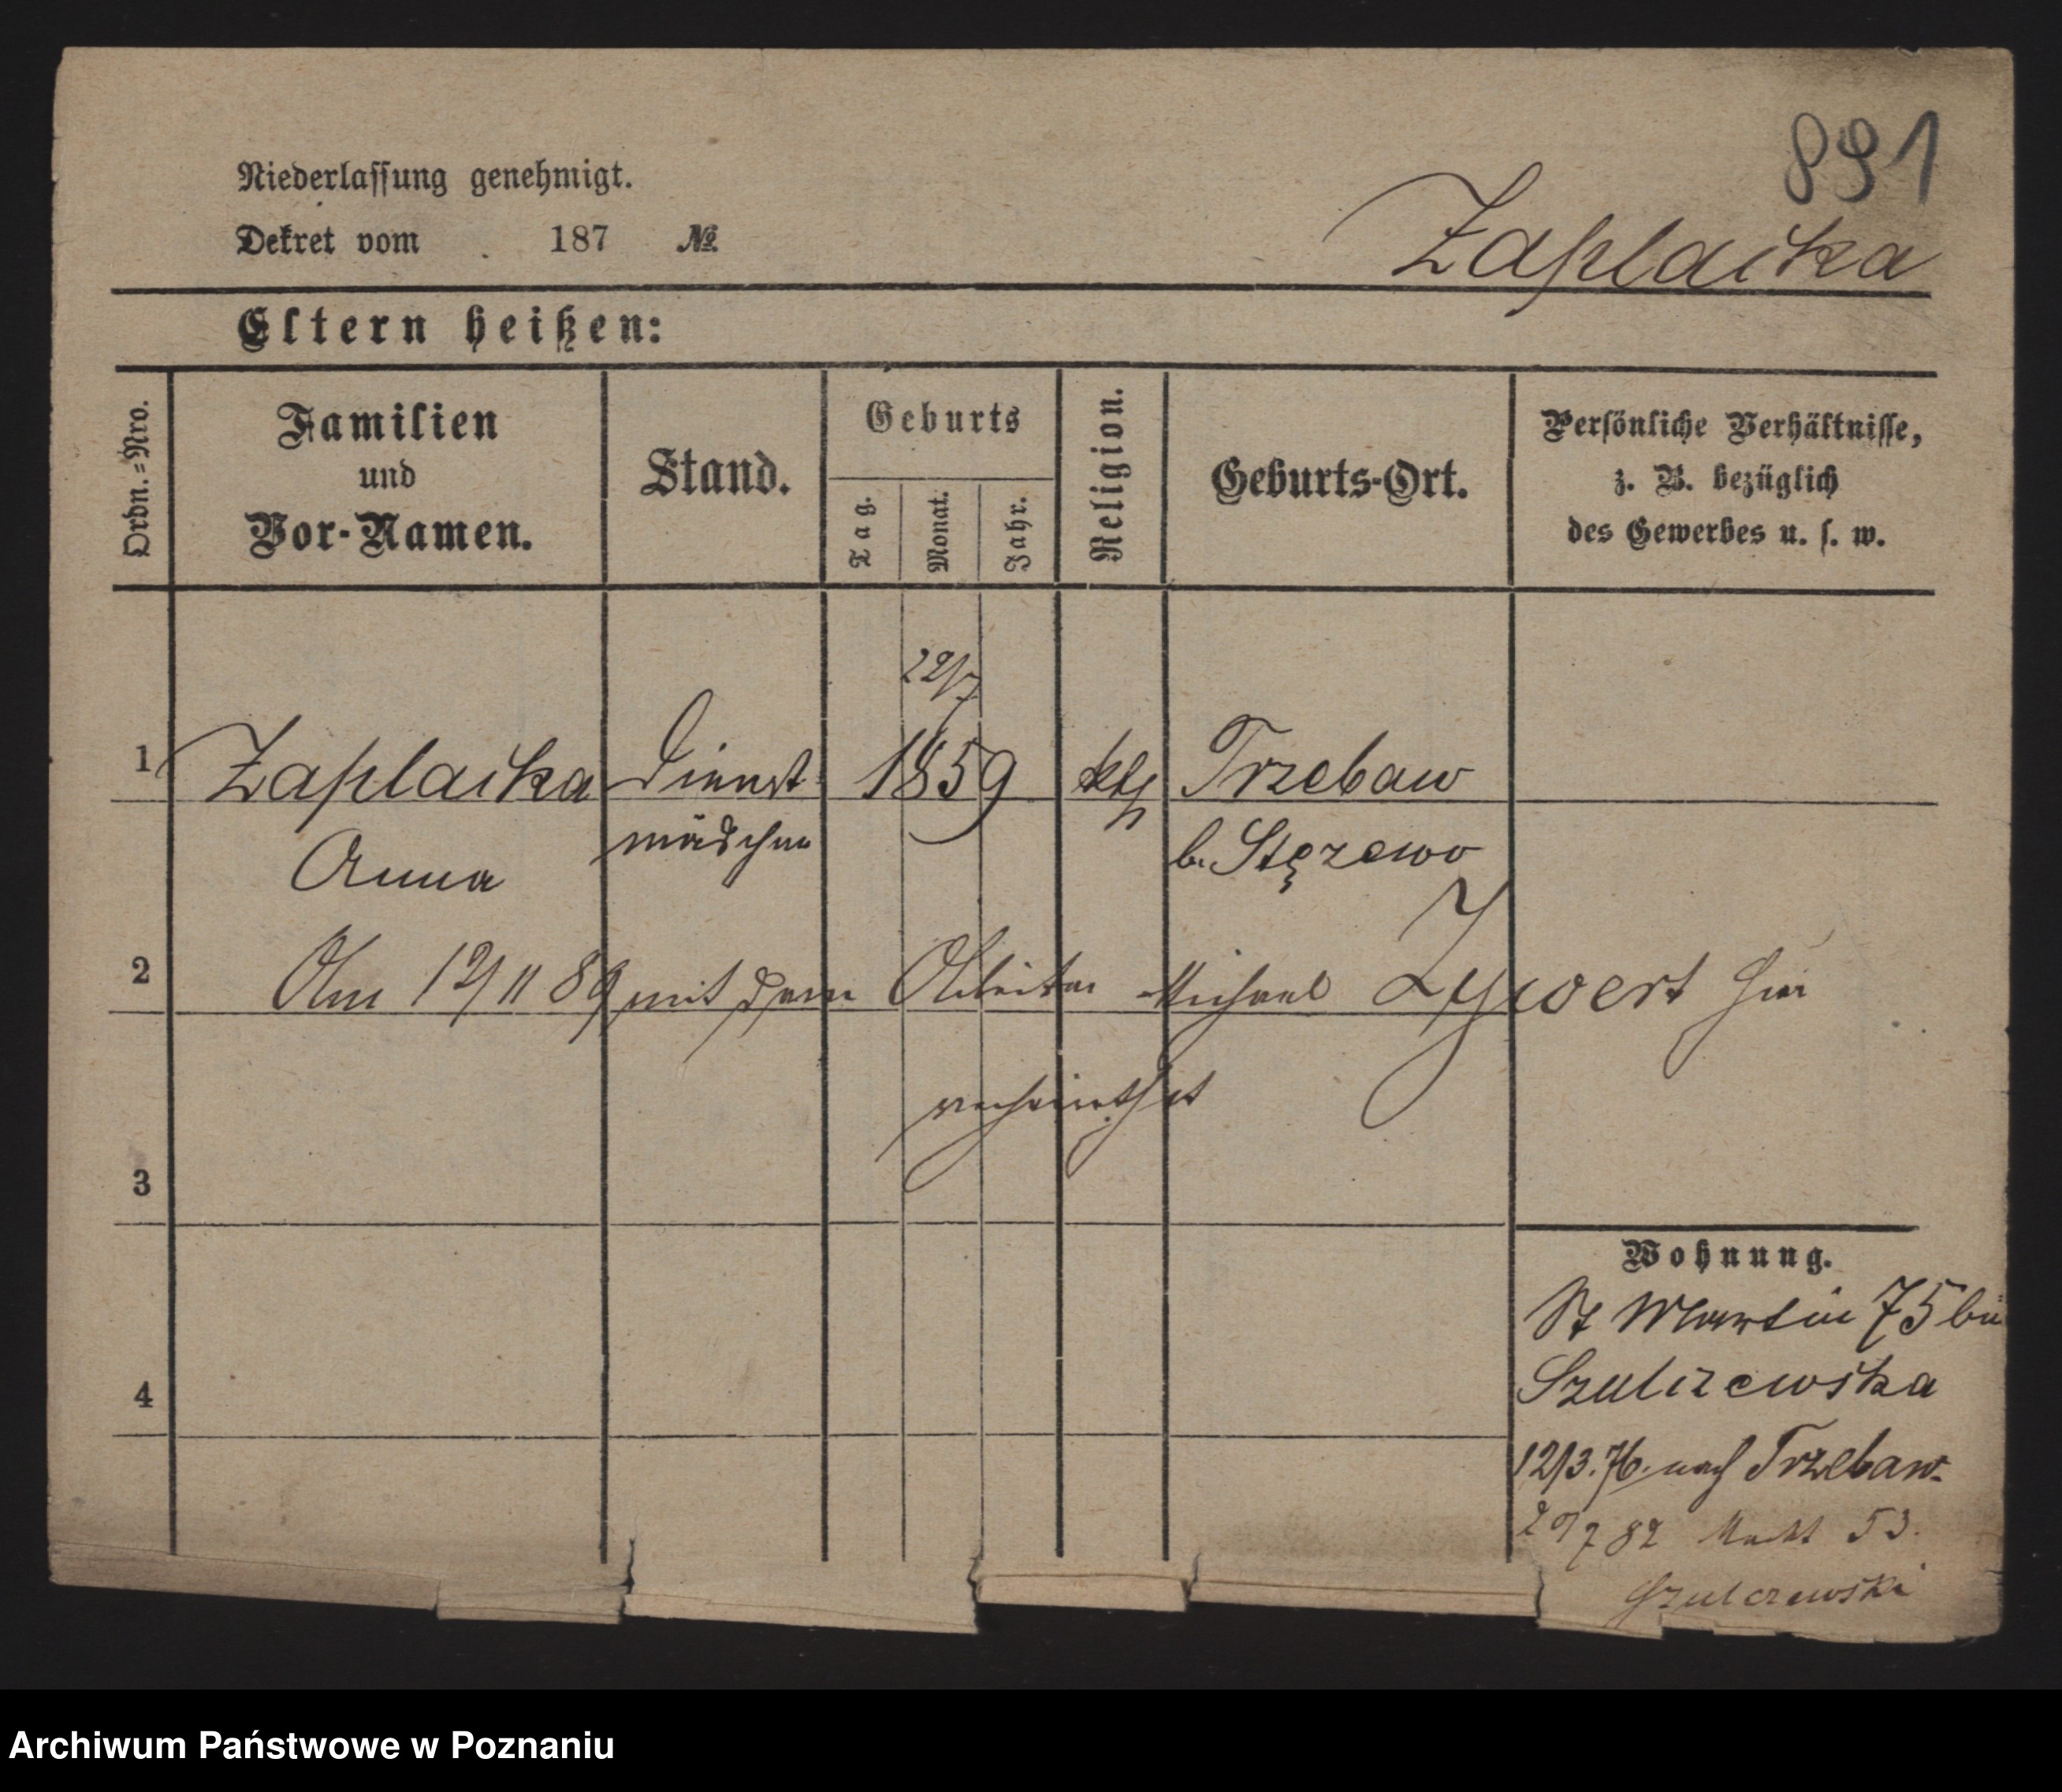 891
Niederlassung genehmigt.
Dekret vom . 187 №
Zaplacka
Eltern heißen:
Ordn.=Nro.
Familien
und
Vor-Namen.
Stand.
Geburts
Tag.
Monat.
Jahr.
Religion.
Geburts-Ort.
Persönliche Verhältnisse,
z. B. bezüglich
des Gewerbes u. s. w.
22/7
1 Zaplacka Dienst- 1859 kth Trzebaw
Anna mädchen b. Stęzewo
2 Am 12/11 89 mit dem Arbeiter Michael Zywert hier
verheirathet
3
Wohnung.
St Martin 75 bei
Szulczewska
4
12/3.76. nach Trzebaw.
29/7 82 Markt 53.
Szulczewski
Archiwum Państwowe w Poznaniu